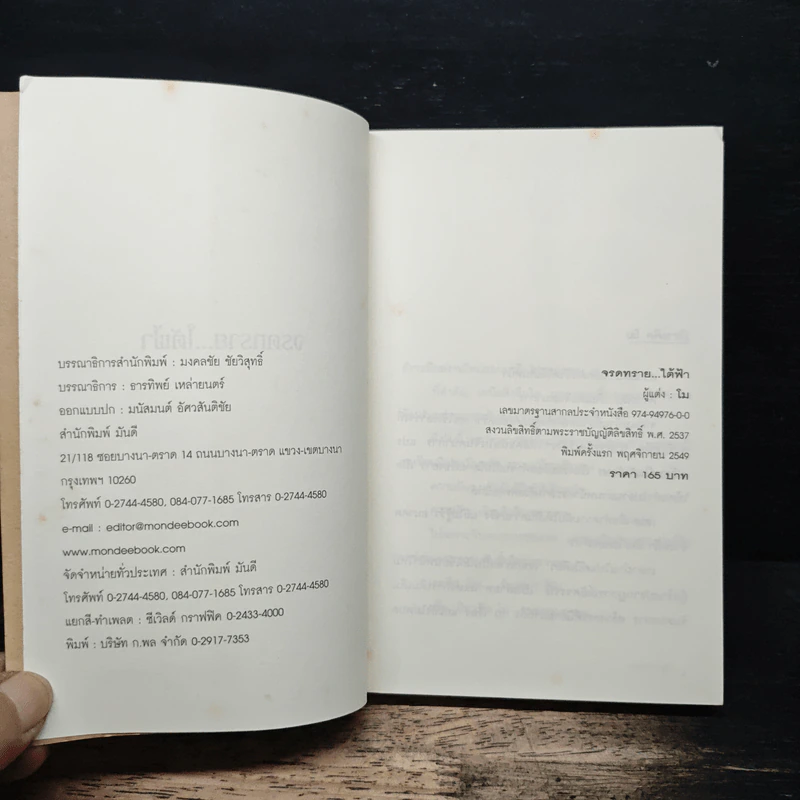 บรรณาธิการสำนักพิมพ์ : มงคลชัย ชัยวิสุทธิ์
บรรณาธิการ : ธารทิพย์ เหล่ายนตร์
ออกแบบปก : มนัสมนต์ อัศวสันติชัย
สำนักพิมพ์ มันดี
21/118 ซอยบางนา-ตราด 14 ถนนบางนา-ตราด แขวง-เขตบางนา
กรุงเทพฯ 10260
โทรศัพท์ 0-2744-4580, 084-077-1685 โทรสาร 0-2744-4580
e-mail : editor@mondeebook.com
www.mondeebook.com
จัดจำหน่ายทั่วประเทศ : สำนักพิมพ์ มันดี
โทรศัพท์ 0-2744-4580, 084-077-1685 โทรสาร 0-2744-4580
แยกสี-ทำเพลต : ซีเวิลด์ กราฟฟิค 0-2433-4000
พิมพ์ : บริษัท ก.พล จำกัด 0-2917-7353
จรดทราย...ใต้ฟ้า
ผู้แต่ง : โม
เลขมาตรฐานสากลประจำหนังสือ 974-94976-0-0
สงวนลิขสิทธิ์ตามพระราชบัญญัติลิขสิทธิ์ พ.ศ. 2537
พิมพ์ครั้งแรก พฤศจิกายน 2549
ราคา 165 บาท